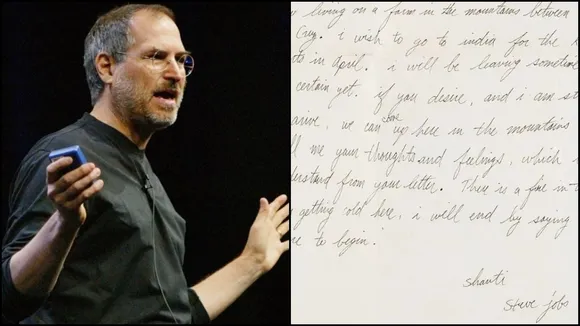 living on a farm in the mountains between
Cruz. i wish to go to india for the
in april. i will be leaving sometime
certain yet. if you desire, and i am st
we can come up here in the mountains
ll me your thoughts and feelings, which
derstand from your letter. There is a fire in
getting old here, i will end by saying
re to begin.
shanti
steve jobs